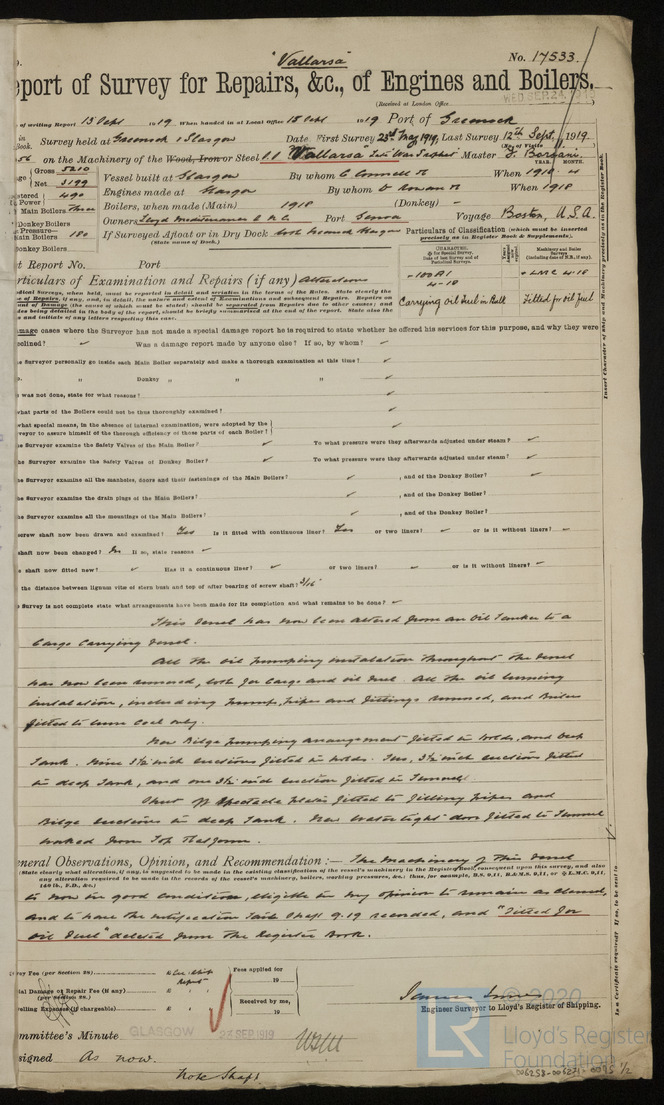 "Vallarsa"
No. 17533.
eport of Survey for Repairs, &c., of Engines and Boilers.
(Received at London Office WED SEP. 24, 19
of writing Report 13 Sept 1919 When handed in at Local Office 15 Sept 1919 Port of Greenock
in Survey held at Greenock & Glasgow Date, First Survey 23rd May 1919, Last Survey 12th Sept. 1919.
Book. (No. of Visits
56 on the Machinery of the Wood, Iron or Steel S.S. "Vallarsa" Master
Gross 5210 Vessel built at Glasgow By whom C Connell & Co When 1918 . 4
YEAR. MONTH.
Net 3199
Engines made at Glasgow By whom D Rowan & Co When 1918
stered Power 490
Boilers, when made (Main) 1918 (Donkey) -
Main Boilers Three
Donkey Boilers
Owners Port Genoa Voyage Boston, U.S.A.
Pressure—
ain Boilers 180 If Surveyed Afloat or in Dry Dock
(State name of Dock.)
Donkey Boilers
Particulars of Classification (which must be inserted
precisely as in Register Book & Supplements).
CHARACTER.
for Special Survey.
Date of last Survey and of
Periodical Surveys.
Machinery and Boiler
Surveys
(including dates of N.B., if any).
100A1
4-18
+ LMC 4.18
Carrying Oil Fuel in Bulk
Fitted for oil fuel
Insert Character of Ship and Machinery precisely as in the Register Book.
t Report No. Port
rticulars of Examination and Repairs (if any) Alterations
mage cases where the Surveyor has not made a special damage report he is required to state whether he offered his services for this purpose, and why they were
clined? ✓ Was a damage report made by anyone else? If so, by whom? ✓
e Surveyor personally go inside each Main Boiler separately and make a thorough examination at this time? ✓
o. „ Donkey „ „ „ ✓
was not done, state for what reasons? ✓
what parts of the Boilers could not be thoroughly examined? ✓
what special means, in the absence of internal examination, were adopted by the
veyor to assure himself of the thorough efficiency of those parts of each Boiler? ✓
e Surveyor examine the Safety Valves of the Main Boiler? ✓ To what pressure were they afterwards adjusted under steam? ✓
he Surveyor examine the Safety Valves of Donkey Boiler? ✓ To what pressure were they afterwards adjusted under steam? ✓
e Surveyor examine all the manholes, doors and their fastenings of the Main Boilers? ✓ , and of the Donkey Boiler? ✓
he Surveyor examine the drain plugs of the Main Boilers? ✓ , and of the Donkey Boiler?
he Surveyor examine all the mountings of the Main Boilers? ✓ , and of the Donkey Boiler?
screw shaft now been drawn and examined? Yes Is it fitted with continuous liner? Yes or two liners? ✓ or is it without liners? ✓
shaft now been changed? No If so, state reasons ✓
e shaft now fitted new? ✓ Has it a continuous liner? ✓ or two liners? ✓ or is it without liners? ✓
the distance between lignum vitæ of stern bush and top of after bearing of screw shaft? 3/16"
e Survey is not complete state what arrangements have been made for its completion and what remains to be done? ✓
This vessel has now been altered from an Oil Tanker to a
Cargo Carrying Vessel.
All the oil pumping installation throughout the vessel
has now been removed, both for Cargo and oil fuel. All the oil burning
installation, including pumps, pipes and fittings removed, and Boilers
fitted to burn Coal only.
New Bilge pumping arrangement fitted in holds, and Deep
Tank. Nine 3½ inch suctions fitted in holds. Two, 3½ inch suctions fitted
in deep Tank, and one 3½ inch suction fitted in Tunnel.
Shut off Spectacle plates fitted to filling pipes and
Bilge suctions in deep Tank. New Watertight door fitted to Tunnel
worked from Top Platform.
eneral Observations, Opinion, and Recommendation:— The machinery of this vessel
(State clearly what alteration, if any, is suggested to be made in the existing classification of the vessel's machinery in the Register Book, consequent upon this survey, and also
any alteration required to be made in the records of the vessel's machinery, boilers, working pressures, &c.: thus, for example, B.S. 9,11, B.&M.S. 9,11, or L.M.C. 9,11,
140 lb., F.D., &c.)
is now in good condition, eligible in my opinion to remain as classed,
and to have the notification Tail Shaft 9.19 recorded, and "Fitted for
oil fuel" deleted from the Register Book.
vey Fee (per Section 28)
ial Damage or Repair Fee (if any)
(per Section 28.)
velling Expenses (if chargeable)
Fees applied for
19
Received by me,
19
Engineer Surveyor to Lloyd's Register of Shipping.
ommittee's Minute GLASGOW 23 SEP. 1919
signed As now.
Note Shaft
Is a Certificate required? If so, to be sent to
© 2020
LR
Lloyd's Register
Foundation
006258-006271-0075 1/2